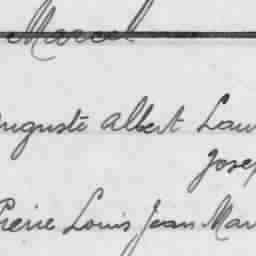 Marcel
Auguste Albert Lau
Josep
Pierre Louis Jean Mar